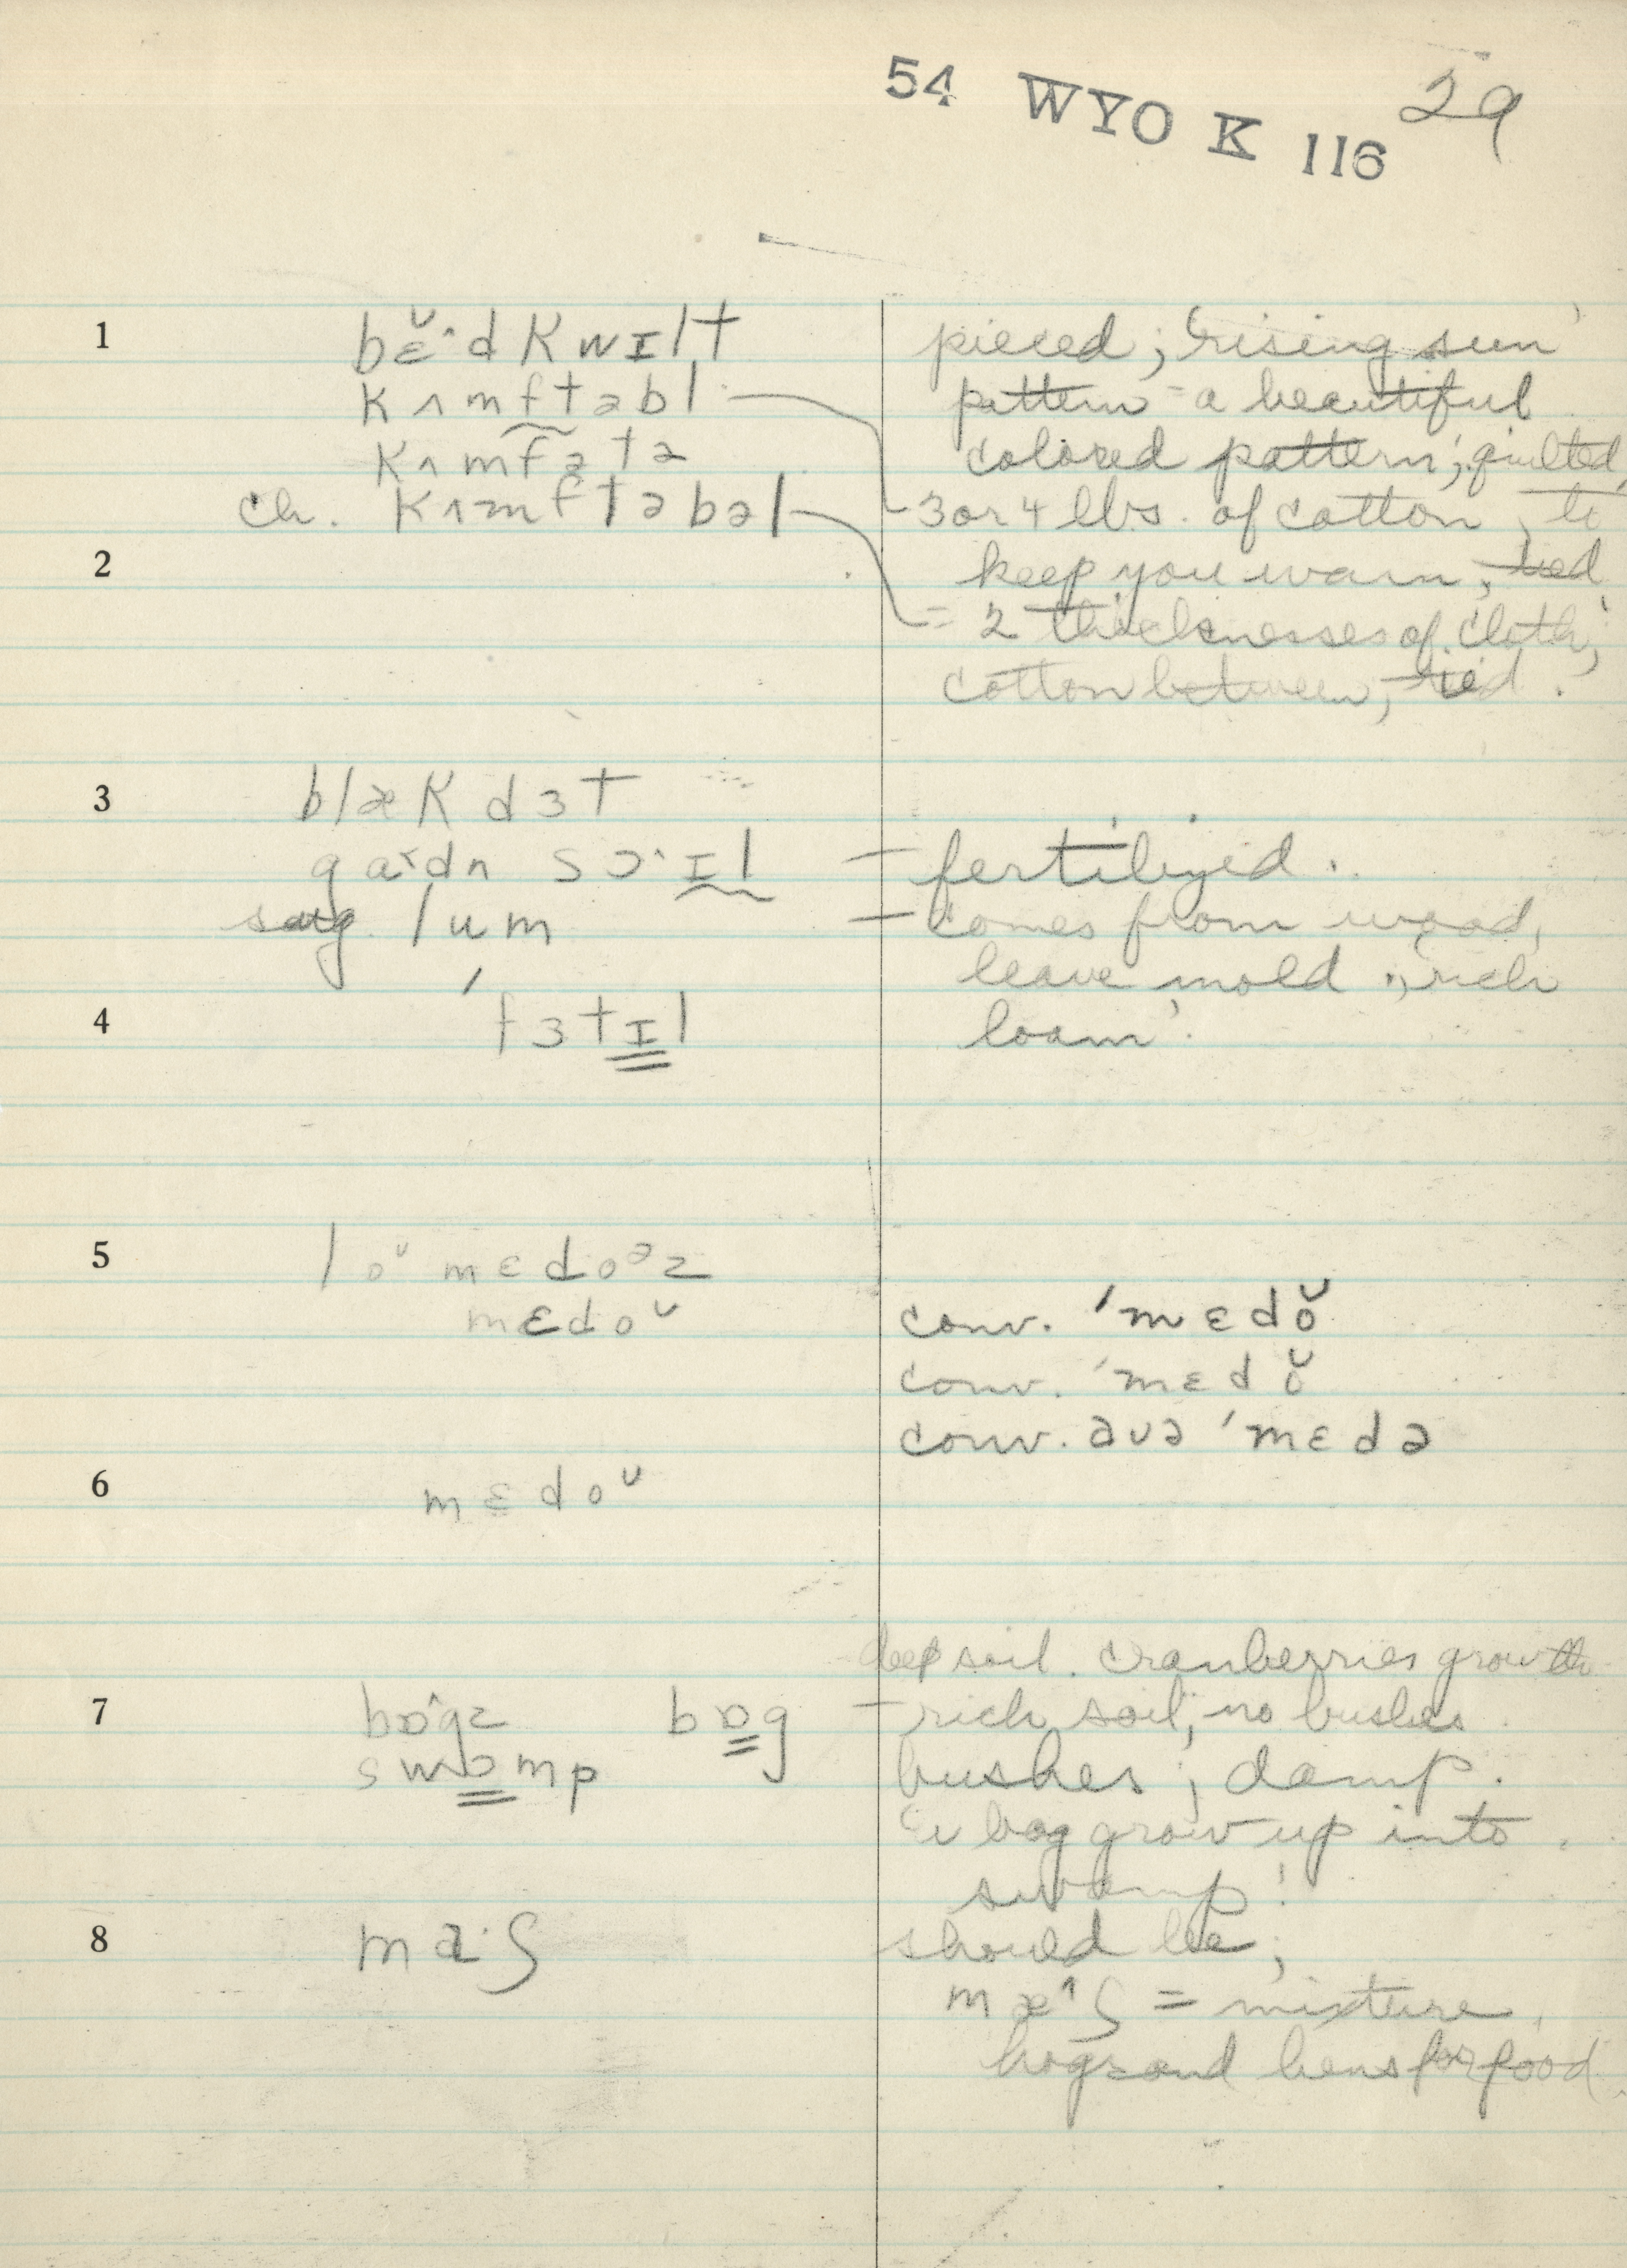 54 WYO K 116 29
1 bɛ̆ˑd kwɪlt
pieced; 'rising sun'
kʌmftəbl
pattern = a beautiful
kʌmfətə
colored pattern; quilted,
ch. kʌmftəbəl
3 or 4 lbs. of cotton, to
2
keep you warm, tied
= 2 thicknesses of cloth;
cotton between, tied.
3 blæk dɜt
gaˑdn sɔˑɪl = fertilized.
sug. lum = comes from wood,
leave mold, rich
4 ˈfɜtɪl
loam'.
5 loᴜ mɛdoᵊz
mɛdoᴜ
conv. ˈmɛdŏ
conv. ˈmɛdŏ
conv. avə ˈmɛdə
6 mɛdoᴜ
deep soil. cranberries grow
7 bɒˆgz bɒg - rich soil, no bushes.
swɒmp
bushes; damp.
bog grow up into
swamp!
8 maˑʃ
should be;
mæˆʃ = mixture,
hogs and hens for food